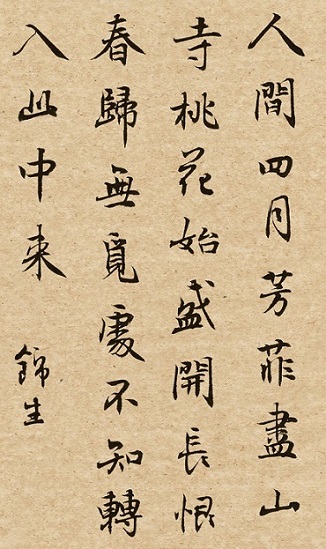 人間四月芳菲盡山
寺桃花始盛開長恨
春歸無覓處不知轉
入此中來
錦生